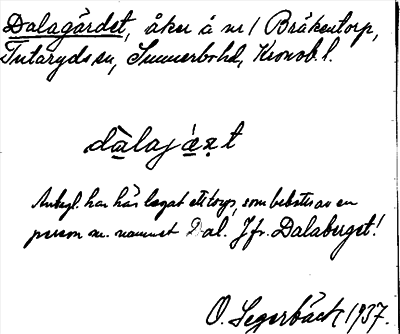 Dalagärdet, åker å nr 1 Bråkentorp,
Tutaryds sn, Sunnerbo hd, Kronob. l.
dàlajáṛt
Anbegl. har här legat ett torp, som bebotts av en
person m. namnet Dal. Jfr. Dalaberget!
O. Segerbäck 1937.